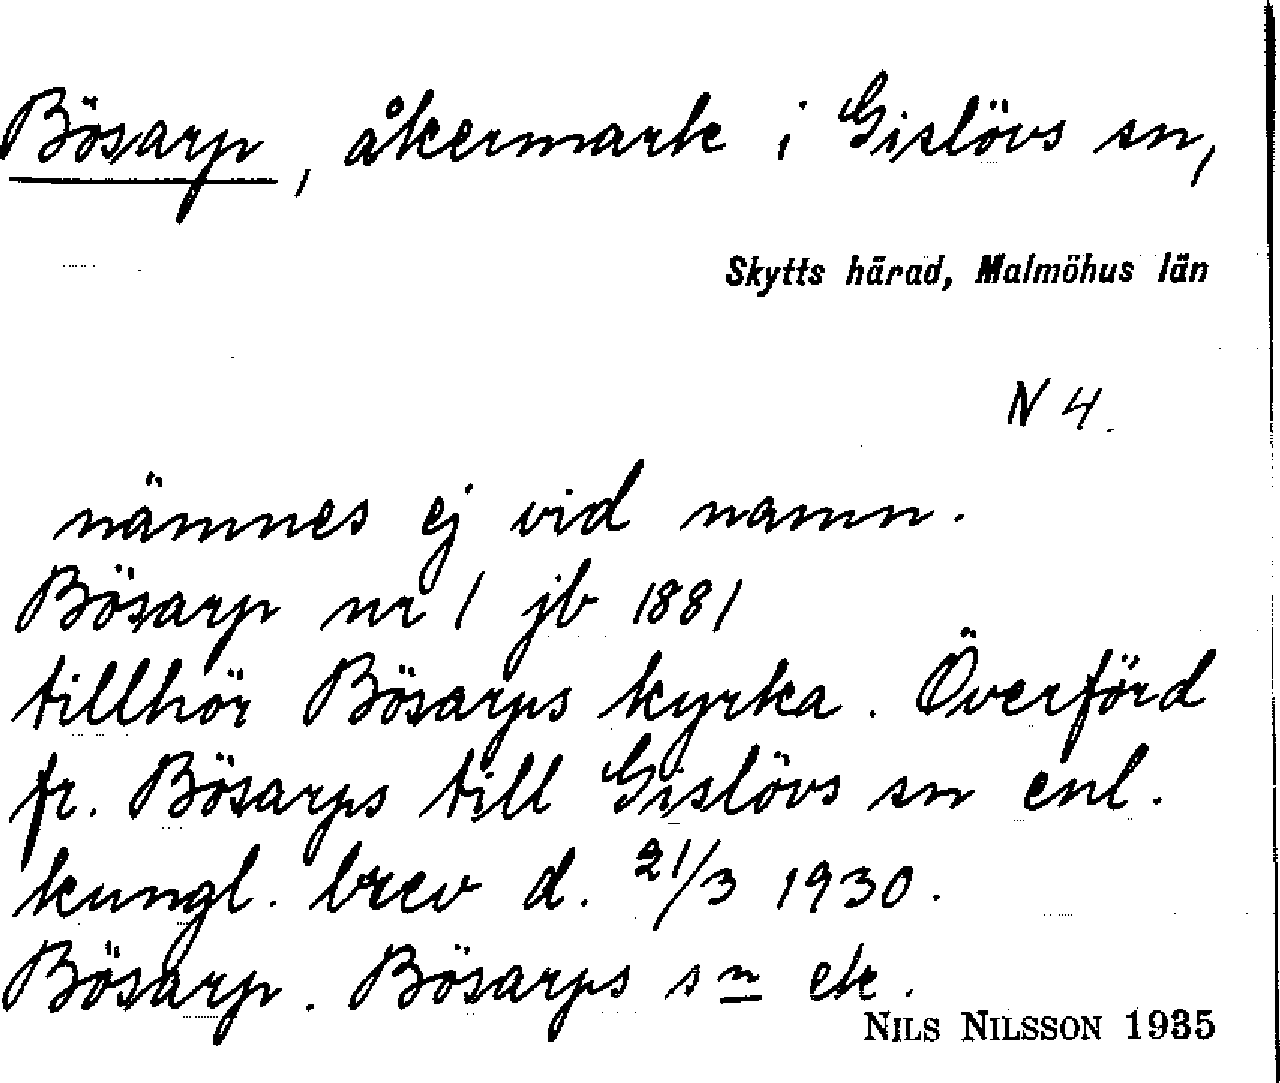 Bösarp, åkermark i Gislövs sn,
Skytts härad, Malmöhus län
N 4.
nämnes ej vid namn.
Bösarp nr 1 jb 1881
tillhör Bösarps kyrka. Överförd
fr. Bösarps till Gislövs sn enl.
kungl. brev d. 21/3 1930.
Bösarp. Bösarps sn ek.
NILS NILSSON 1935